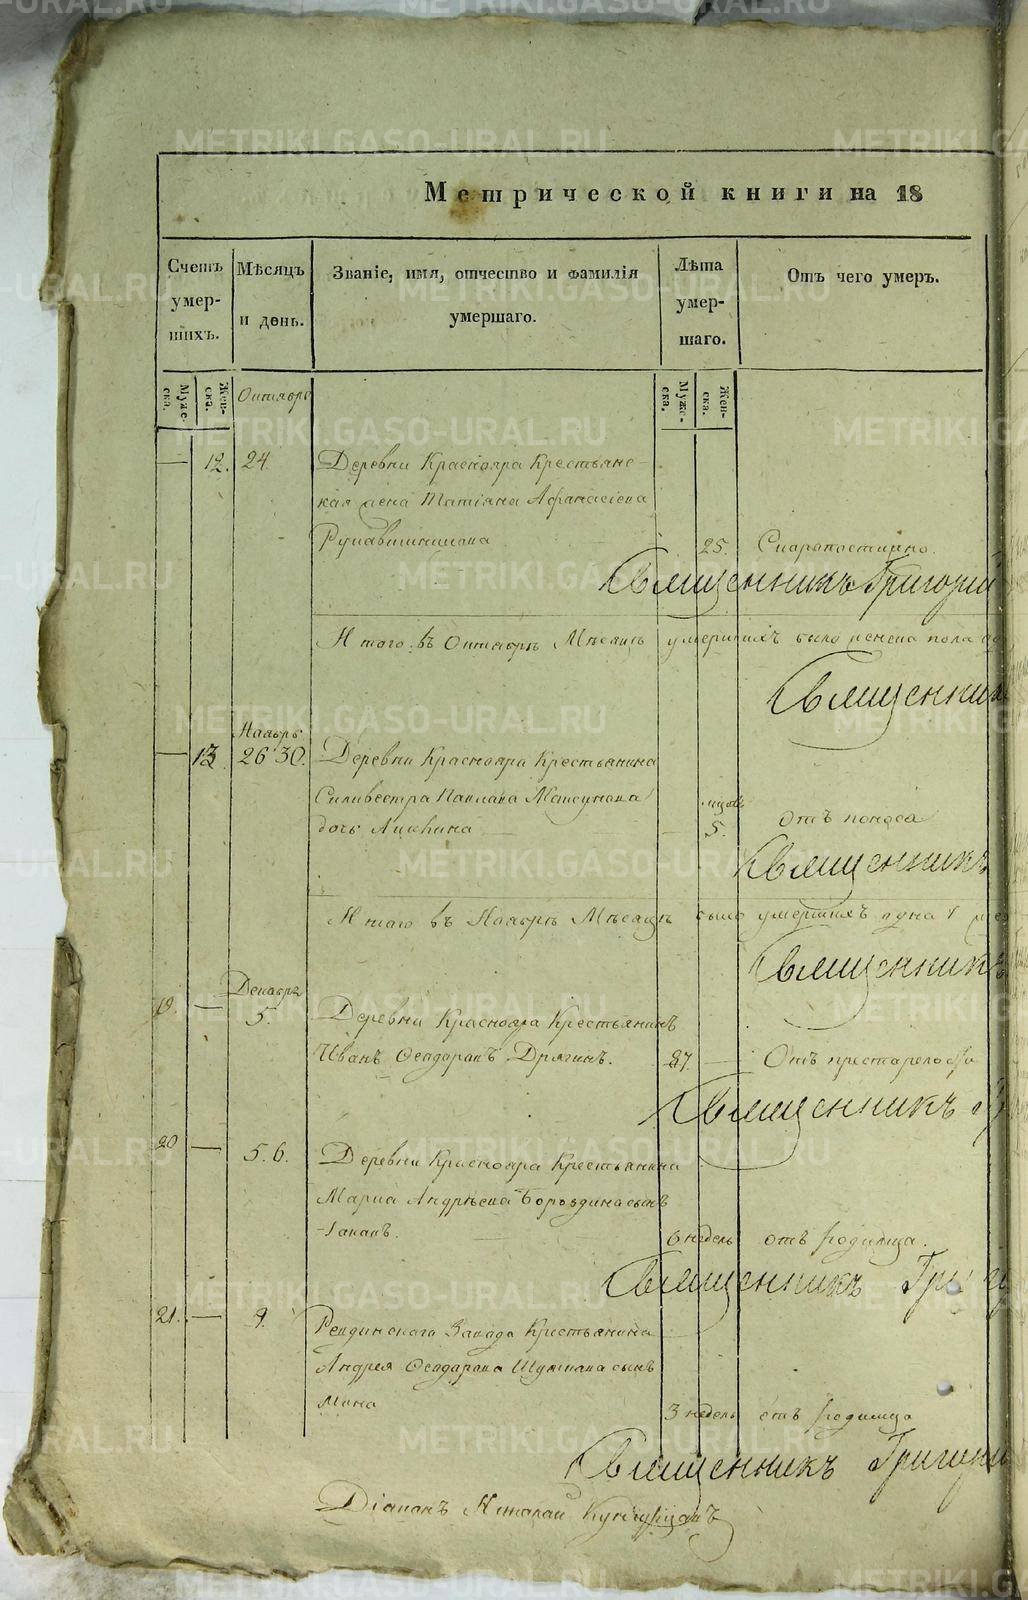 Метрической книги на 18
Счетъ умер- шихъ.
Мѣсяцъ и день.
Званіе, имя, отчество и фамилія умершаго.
Лѣта умер- шаго.
Отъ чего умеръ.
Муже- ска.
Жен- ска.
Октябрь
Муже- ска.
Жен- ска.
— 12. 24. Деревни Краснояра Крестьянс-
кая жена Татіяна Афанасіева
25. Скоропостижно.
Священникъ Григорій
Итого въ Октябрѣ Мѣсяцѣ умершихъ было женска пола
Священник
Ноябрь
— 13. 26 30. Деревни Краснояра Крестьянина
Силивестра Павлова
дочь
месяцовъ
5. отъ поноса
Священникъ
Итого въ Ноябрѣ Мѣсяцѣ было умершихъ одна
Священникъ
Декабрь
19. — 5. Деревни Краснояра Крестьянинъ
Иванъ Ѳеодоровъ Дрягинъ. 87. — Отъ престарелости
Священникъ
20 — 5. 6. Деревни Краснояра Крестьянина
Марка Андрѣева Бороздина сынъ
Іаковъ. 6 недель отъ родимца.
Священникъ Григ
21. — 9. Ревдинскаго Завода Крестьянина
Андрея Ѳеодорова сынъ
Мина 3 недель отъ родимца
Священникъ Григорій
Діаконъ Николай Кунгурцовъ
METRIKI.GASO-URAL.RU